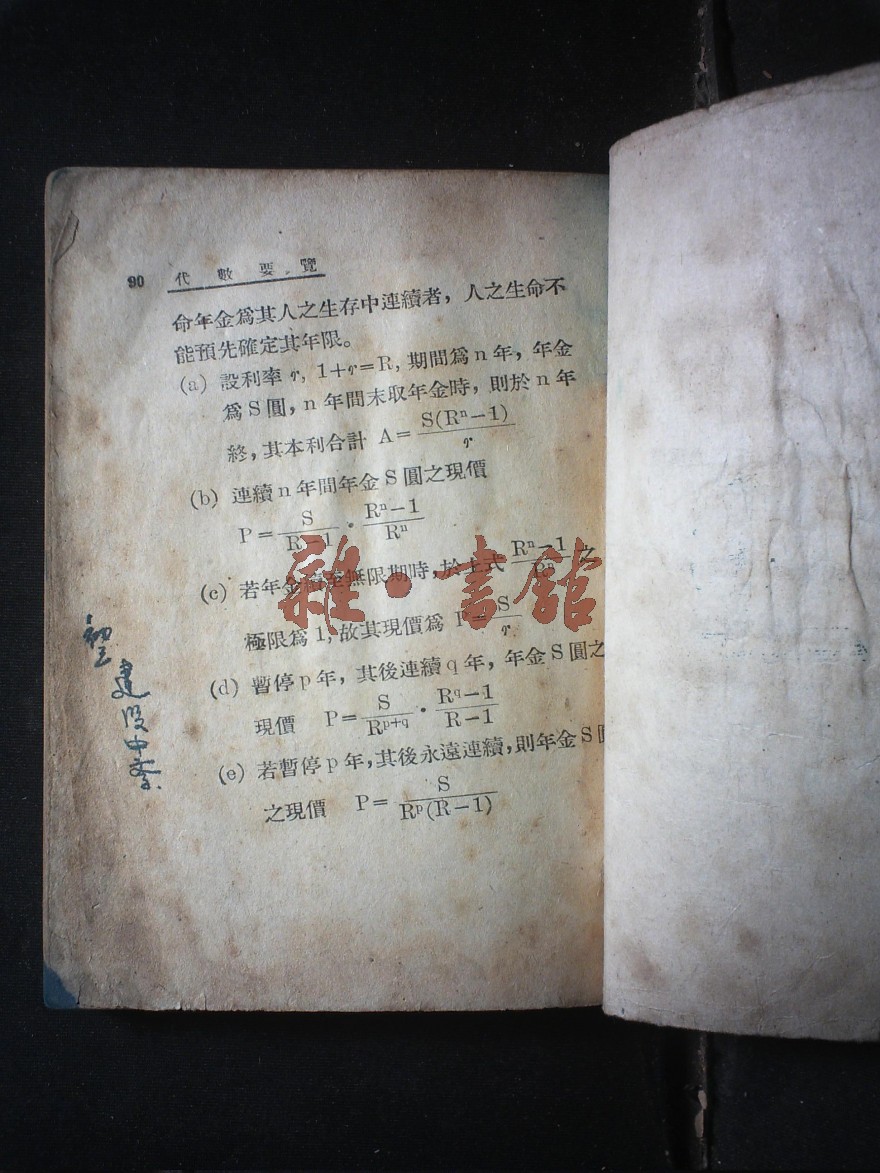 90 代數要覽
命年金爲其人之生存中連續者，人之生命不
能預先確定其年限。
(a) 設利率 r, 1+r=R, 期間爲 n 年，年金
爲 S 圓，n 年間末取年金時，則於 n 年
終，其本利合計 A=S(Rⁿ−1)/r
(b) 連續 n 年間年金 S 圓之現價
P=S/(R−1)·(Rⁿ−1)/Rⁿ
(c) 若年金續至無限期時，於上式 (Rⁿ−1)/Rⁿ 之
極限爲 1, 故其現價爲 P=S/r
(d) 暫停 p 年，其後連續 q 年，年金 S 圓之
現價 P=S/Rᵖ⁺q·(Rq−1)/(R−1)
(e) 若暫停 p 年，其後永遠連續，則年金 S
之現價 P=S/(Rᵖ(R−1))
雜·書館
建設中